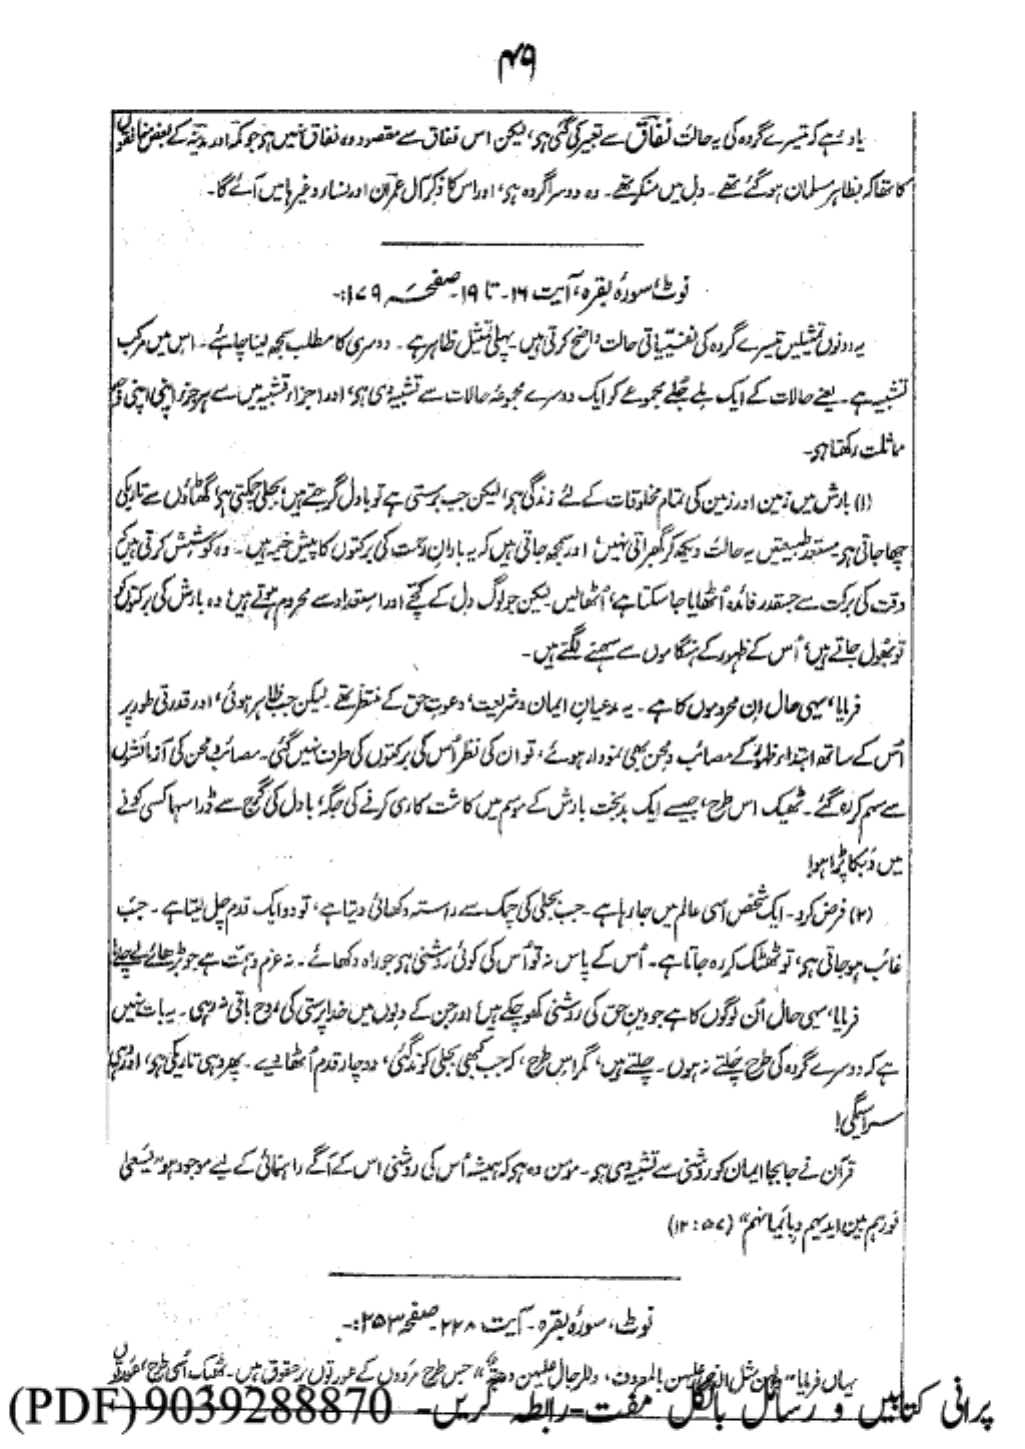 ۴۹
یاد رہے کہ تیسرے گروہ کی یہ حالت نفاق سے تعبیر کی گئی ہو، لیکن اس نفاق سے مقصود وہ نفاق نہیں ہو جو مکہ اور مدینہ کے بعض منافقوں
کا تھا کہ بظاہر مسلمان ہو گئے تھے۔ دل میں منکر تھے۔ وہ دوسرا گروہ ہو، اور اس کا ذکر آل عمران اور نساء وغیرہا میں آئے گا۔
نوٹ، سورۂ بقرہ، آیت ۱۶۔ تا ۱۹۔ صفحہ ۱۷۹:۔
یہ دونوں تمثیلیں تیسرے گروہ کی نفسیاتی حالت واضح کرتی ہیں۔ پہلی تمثیل ظاہر ہے۔ دوسری کا مطلب سمجھ لینا چاہئے۔ اس میں مرکب
تشبیہ ہے۔ یعنے حالات کے ایک ملے جلے مجموعے کو ایک دوسرے مجموعۂ حالات سے تشبیہ دی ہو، اور اجزاء تشبیہ میں سے ہر جزو اپنی اپنی
مماثلت رکھتا ہو۔
(۱) بارش میں زمین اور زمین کی تمام مخلوقات کے لئے زندگی ہو، لیکن جب برستی ہے تو بادل گرجتے ہیں، بجلی چمکتی ہو، گھٹاؤں سے تاریکی
چھا جاتی ہو۔ مستعد طبیعتیں یہ حالت دیکھ کر گھبراتی نہیں، اور سمجھ جاتی ہیں کہ یہ بارانِ رحمت کی برکتوں کا پیش خیمہ ہیں۔ وہ کوشش کرتی ہیں کہ
وقت کی برکت سے جسقدر فائدہ اُٹھایا جا سکتا ہے، اُٹھا لیں لیکن جو لوگ دل کے کچے اور استعداد سے محروم ہوتے ہیں، وہ بارش کی برکتوں کو
تو بھول جاتے ہیں، اُس کے ظہور کے ہنگاموں سے سہمنے لگتے ہیں۔
فرمایا، یہی حال اِن محروموں کا ہے۔ یہ مدعیانِ ایمان و شریعت، دعوتِ حق کے منتظر تھے لیکن جب ظاہر ہوئی، اور قدرتی طور پر
اُس کے ساتھ ابتداءِ ظہور کے مصائب و محن بھی نمودار ہوئے، تو ان کی نظر اُس کی برکتوں کی طرف نہیں گئی۔ مصائب و محن کی آزمائشوں
سے سہم کر رہ گئے۔ ٹھیک اس طرح، جیسے ایک بدبخت بارش کے موسم میں کاشت کاری کرنے کی جگہ، بادل کی گرج سے ڈرا سہما کسی کونے
میں دُبکا پڑا ہو!
(۲) فرض کرو۔ ایک شخص اسی عالم میں جا رہا ہے۔ جب بجلی کی چمک سے راستہ دکھائی دیتا ہے، تو دو ایک قدم چل لیتا ہے۔ جب
غائب ہو جاتی ہو، تو ٹھٹک کر رہ جاتا ہے۔ اُس کے پاس نہ تو اُس کی کوئی روشنی ہو جو راہ دکھائے۔ نہ عزم و ہمت ہے جو بڑھائے لے چلے!
فرمایا، یہی حال اُن لوگوں کا ہے جو دینِ حق کی روشنی کھو چکے ہیں، اور جن کے دلوں میں خدا پرستی کی روح باقی نہ رہی۔ یہ بات نہیں
ہے کہ دوسرے گروہ کی طرح چلتے نہ ہوں۔ چلتے ہیں، مگر اس طرح، کہ جب کبھی بجلی کوند گئی، دو چار قدم اُٹھا دیے۔ پھر وہی تاریکی ہو، اور وہی
سراسیمگی!
قرآن نے جا بجا ایمان کو روشنی سے تشبیہ دی ہو۔ مومن وہ ہو کہ ہمیشہ اُس کی روشنی اس کے آگے راہنمائی کے لیے موجود ہو "یسعیٰ
نورہم بین ایدیہم وبأیمانہم" (۱۲:۵۷)
نوٹ، سورۂ بقرہ۔ آیت ۲۲۸۔ صفحہ ۲۵۳:۔
یہاں فرمایا "لہن مثل الذی علیہن بالمعروف، وللرجال علیہن درجۃ" جس طرح مردوں کے عورتوں پر حقوق ہیں۔ ٹھیک اُسی طرح، عورتوں
پرانی کتابیں و رسائل بالکل مفت-رابطہ کریں- 9039288870 (PDF)